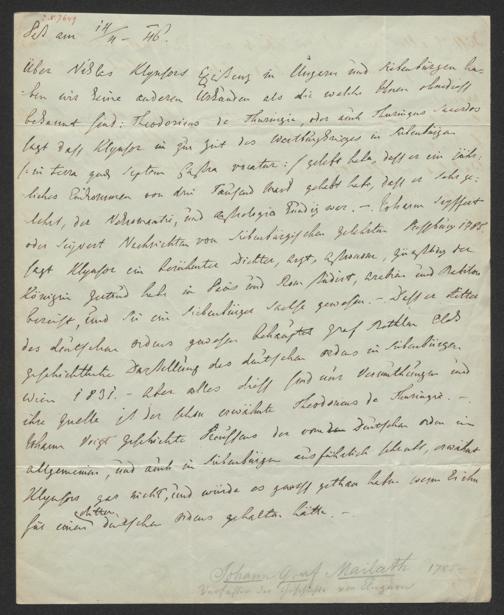 Pest am 14/4 – 46.
Über Niklas Klynsors Existenz in Ungern und Siebenbürgen ha-
ben wir keine anderen Urkunden als die welche Ihnen ohnedieß
bekannt sind: Theodoricus de Thuringia, oder auch Thuringus Sacerdos
sagt daß Klynsor zur Zeit des Wartburgkrieges in Siebenbürgen
in terra quae Septem Castra vocatur gelebt habe, daß er ein jähr-
liches Einkommen von drei Tausend Mark gehabt habe, daß er sehr ge-
lehrt, der Nekromantie, und Astrologie kundig war. – Johann Seyffert
oder Seyvert Nachrichten von Siebenbürgischen Gelehrten Preßburg 1785.
sagt Klynsor ein berühmter Dichter, Arzt, Astronom, Günstling der
Königin Gertrud habe in Paris und Rom studirt, Arabien und
bereist, und sei ein Siebenbürger Sachse gewesen. – Daß er Ritter
des deutschen Ordens gewesen behauptet Graf Bethlen
geschichtliche Darstellung des deutschen Ordens in Siebenbürgen.
Wien 1831. – Aber alles dieß sind nur Vermuthungen und
ihre Quelle ist der schon erwähnte Theodoricus de Thuringia. –
Johann Voigt Geschichte Preußens der vom Deutschen Orden im
allgemeinen, und auch in Siebenbürgen ausführlich schreibt, erwähnt
Klynsors gar nicht, und würde es gewiß gethan haben wenn er ihn
für einen Ritter deutschen Ordens gehalten hätte. –
Johann Graf Mailath 1786–
Verfasser der Geschichte von Ungarn